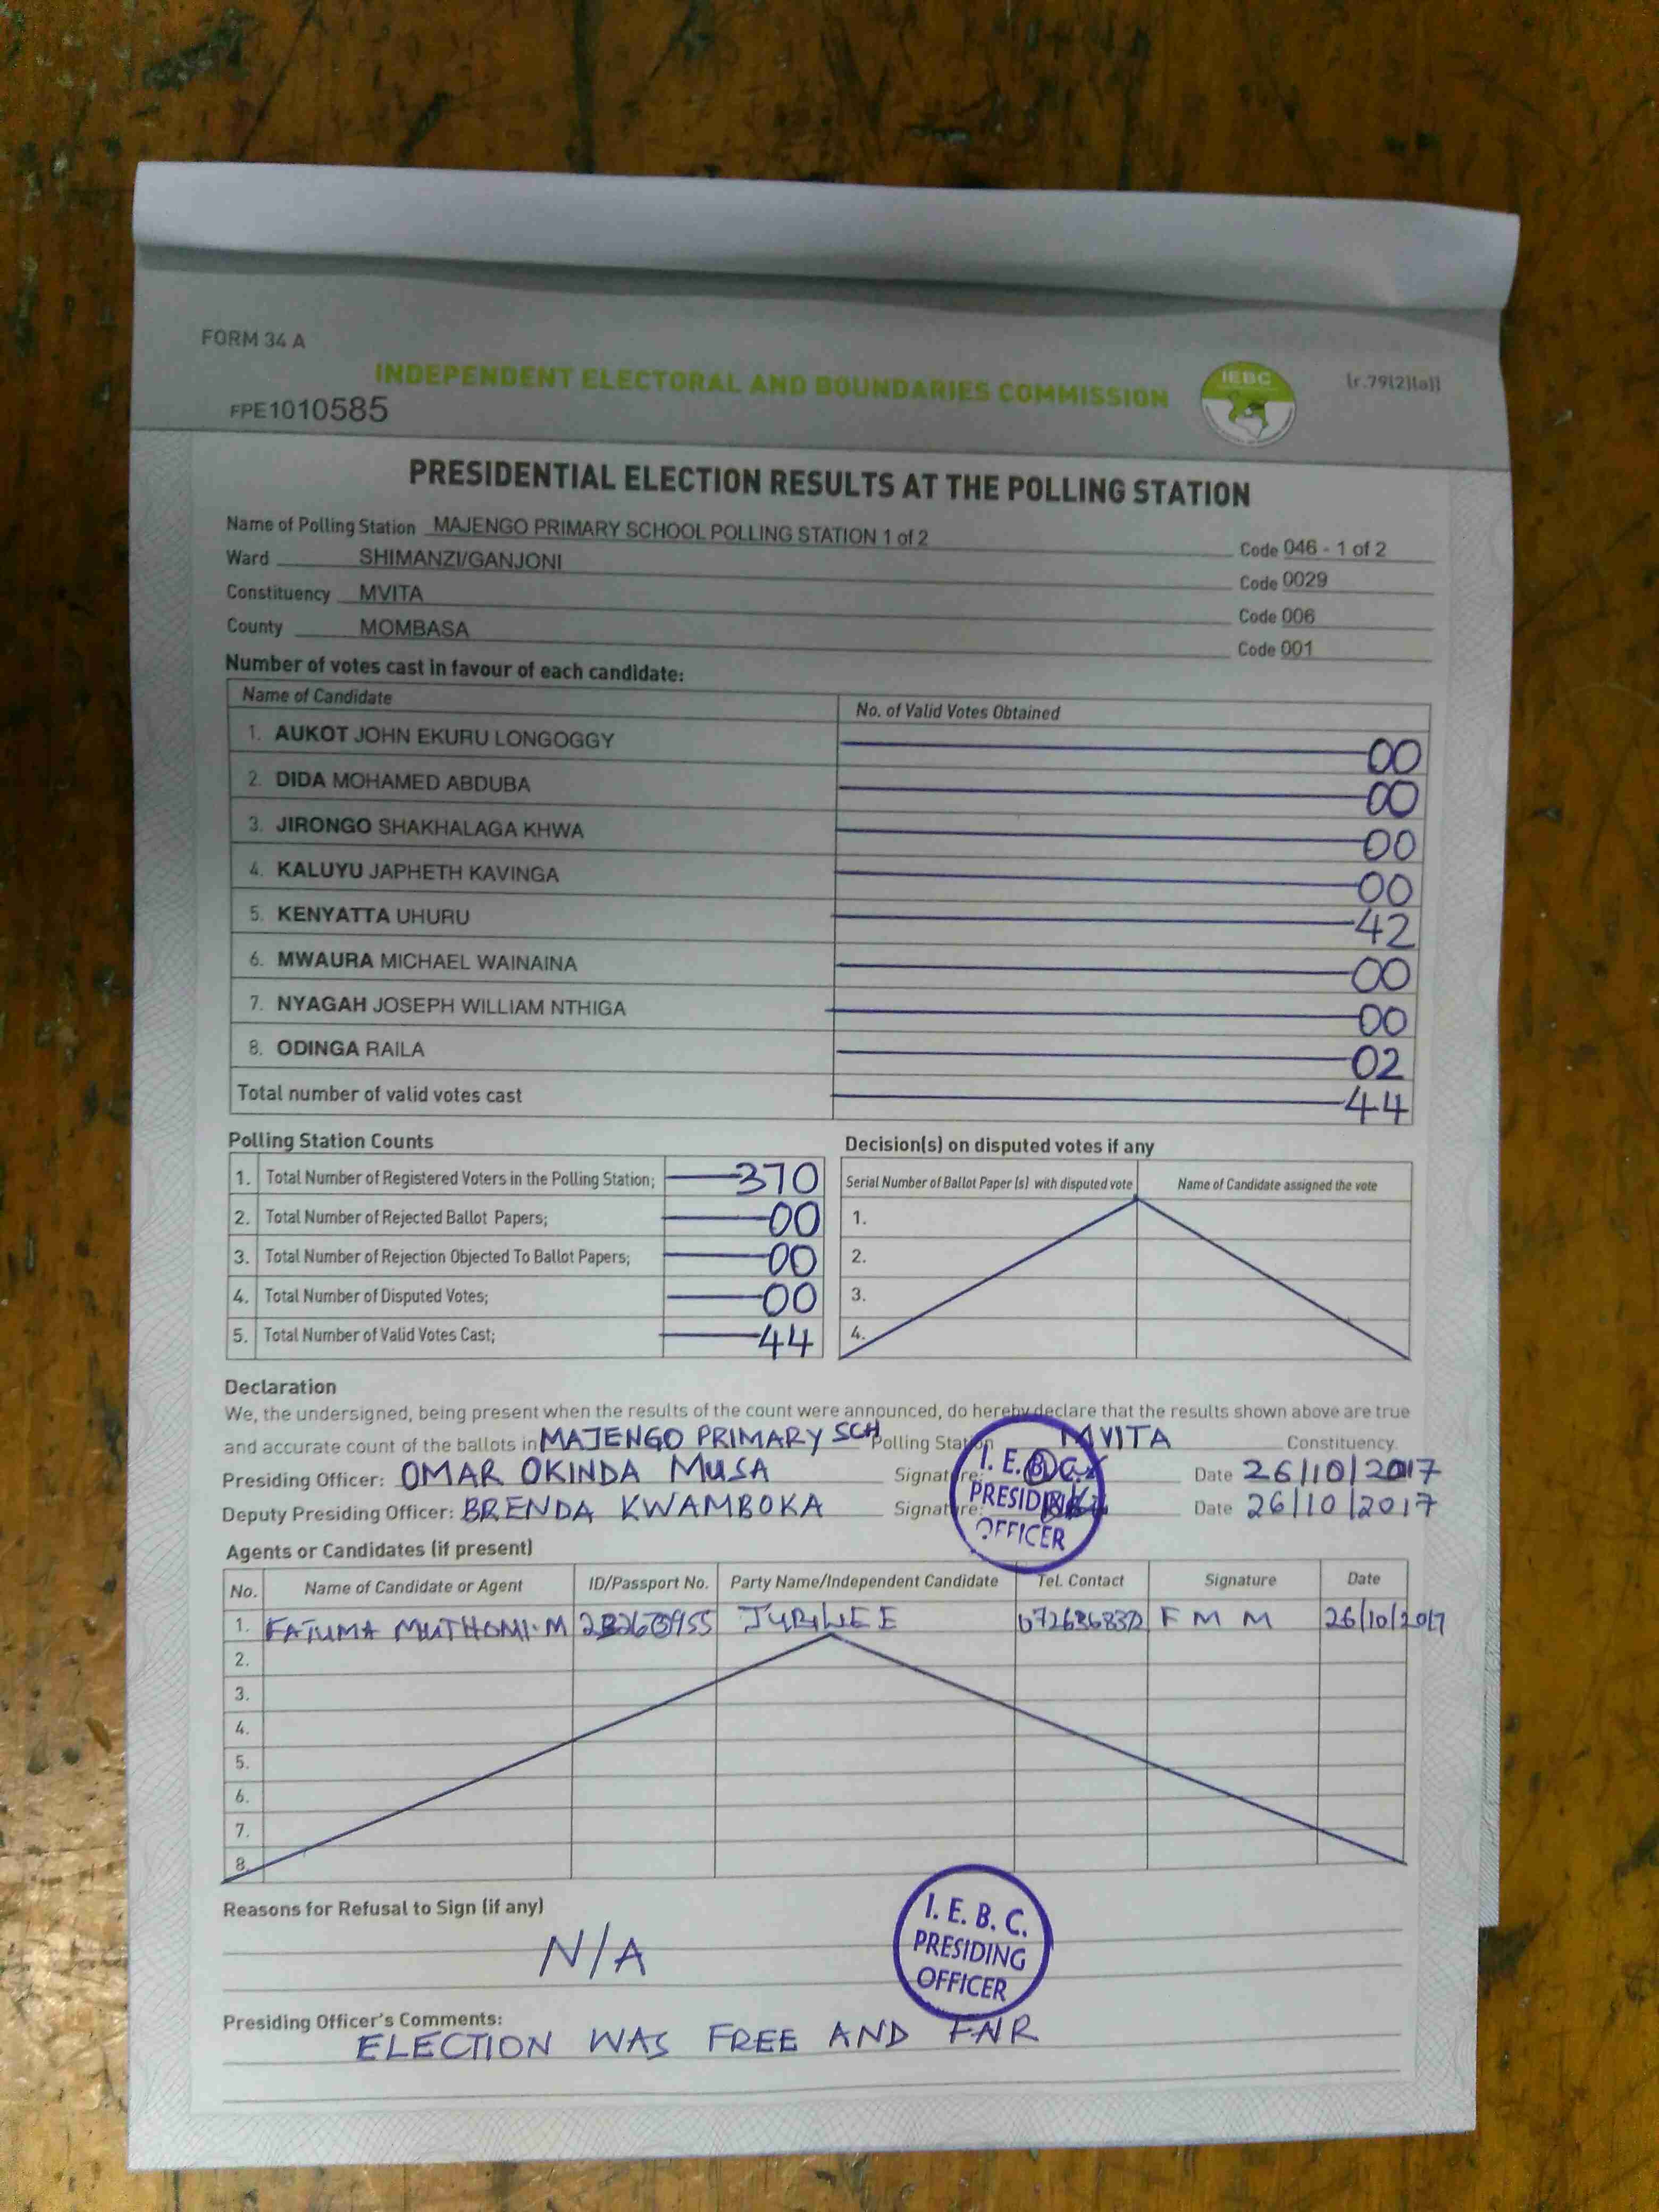 FORM 34 A
INDEPENDENT ELECTORAL AND BOUNDARIES COMMISSION
IEBC
(r.79(2)(a))
FPE1010585
PRESIDENTIAL ELECTION RESULTS AT THE POLLING STATION
Name of Polling Station MAJENGO PRIMARY SCHOOL POLLING STATION 1 of 2 Code 046 - 1 of 2
Ward SHIMANZI/GANJONI Code 0029
Constituency MVITA Code 006
County MOMBASA Code 001
Number of votes cast in favour of each candidate:
Name of Candidate No. of Valid Votes Obtained
1. AUKOT JOHN EKURU LONGOGGY 00
2. DIDA MOHAMED ABDUBA 00
3. JIRONGO SHAKHALAGA KHWA 00
4. KALUYU JAPHETH KAVINGA 00
5. KENYATTA UHURU 42
6. MWAURA MICHAEL WAINAINA 00
7. NYAGAH JOSEPH WILLIAM NTHIGA 00
8. ODINGA RAILA 02
Total number of valid votes cast 44
Polling Station Counts
1. Total Number of Registered Voters in the Polling Station; 370
2. Total Number of Rejected Ballot Papers; 00
3. Total Number of Rejection Objected To Ballot Papers; 00
4. Total Number of Disputed Votes; 00
5. Total Number of Valid Votes Cast; 44
Decision(s) on disputed votes if any
Serial Number of Ballot Paper (s) with disputed vote Name of Candidate assigned the vote
1.
2.
3.
4.
Declaration
We, the undersigned, being present when the results of the count were announced, do hereby declare that the results shown above are true
and accurate count of the ballots in MAJENGO PRIMARY SCH Polling Station MVITA Constituency.
Presiding Officer: OMAR OKINDA MUSA Signature: Date 26/10/2017
Deputy Presiding Officer: BRENDA KWAMBOKA Signature: Date 26/10/2017
I. E. B. C.
PRESIDING
OFFICER
Agents or Candidates (if present)
No. Name of Candidate or Agent ID/Passport No. Party Name/Independent Candidate Tel. Contact Signature Date
1. FATUMA MUTHOMI.M JUBILEE F M M 26/10/2017
2.
3.
4.
5.
6.
7.
8.
Reasons for Refusal to Sign (if any)
N/A
I. E. B. C.
PRESIDING
OFFICER
Presiding Officer's Comments:
ELECTION WAS FREE AND FAIR